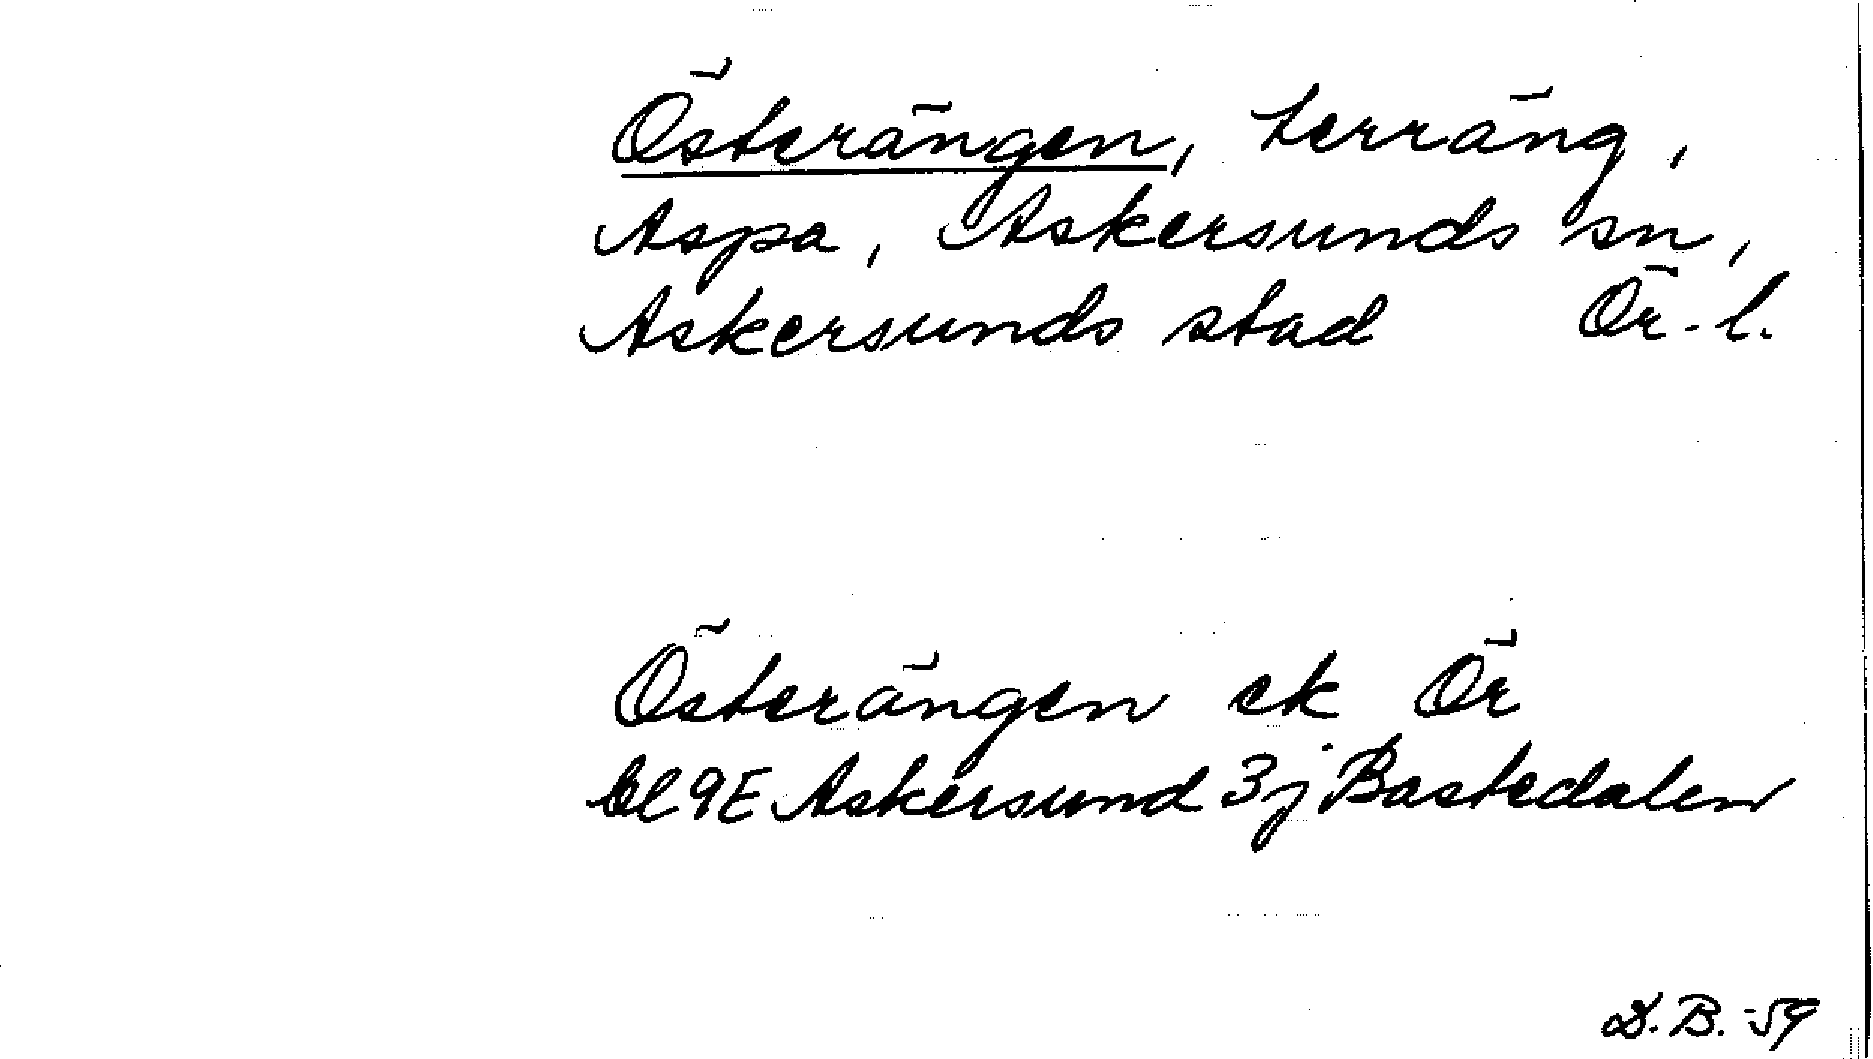 Österängen, terräng,
Aspa, Askersunds sn,
Askersunds stad Ör. l.
Österängen ek Ör
Bl 9E Askersund 3j Bastedalen
D.B. -59